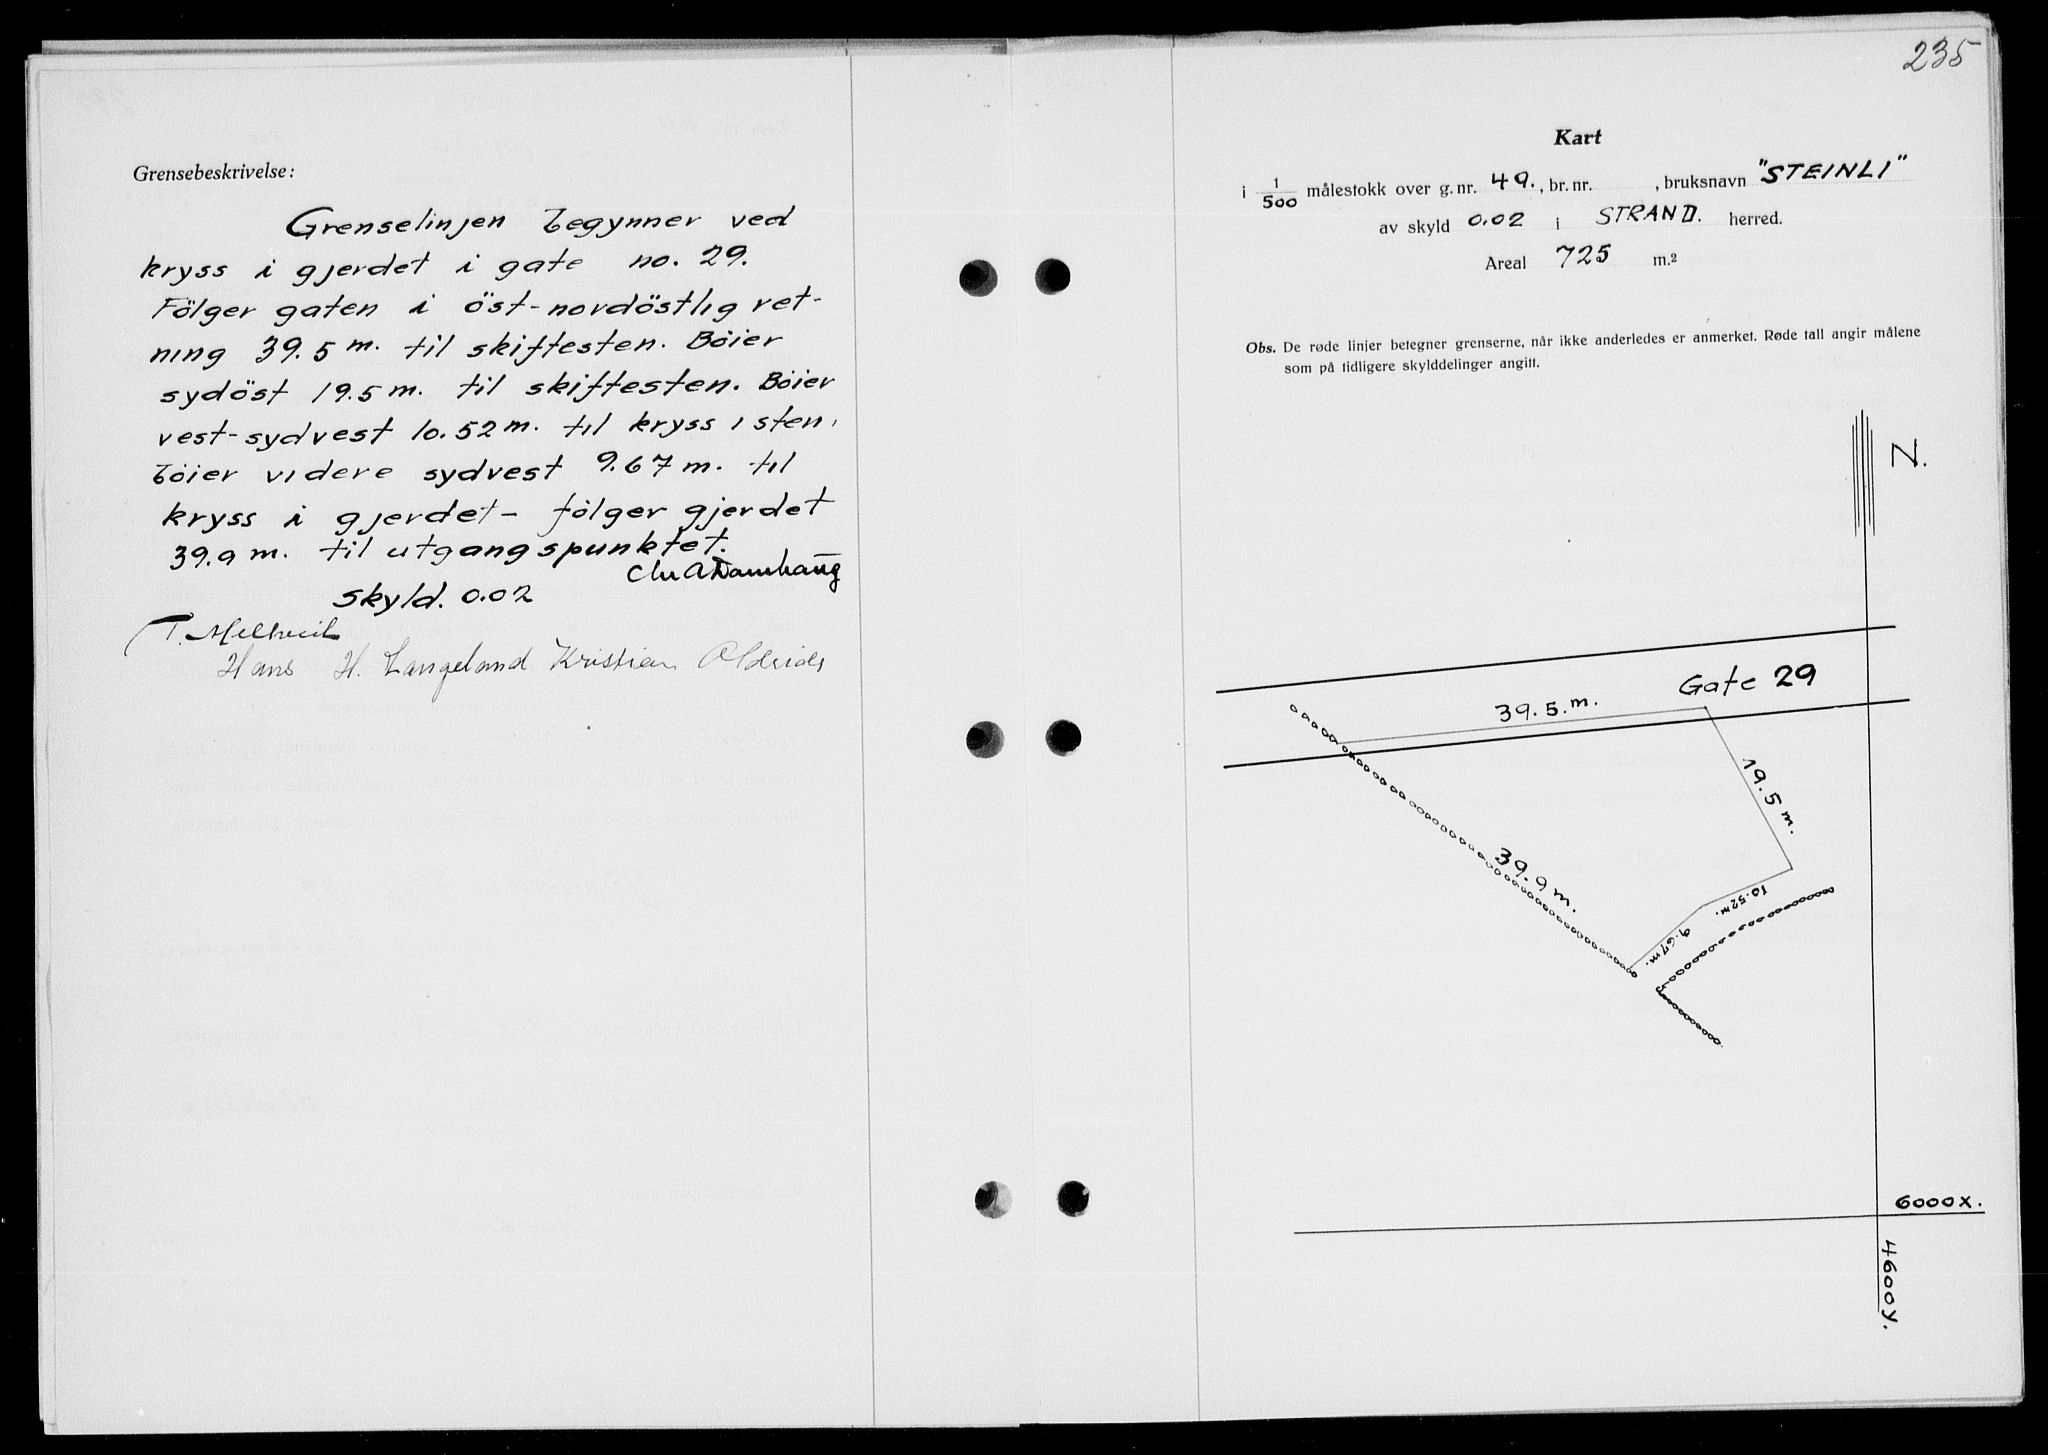 Grensebeskrivelse:
Grenselinjen begynner ved
kryss i gjerdet i gate no. 29.
Fölger gaten i öst-nordöstlig ret-
ning 39.5 m. til skiftesten. Böier
sydöst 19.5 m. til skiftesten. Böier
vest-sydvest 10.52 m. til kryss i sten,
böier videre sydvest 9.67 m. til
kryss i gjerdet - fölger gjerdet
39.9 m. til utgangspunktet.
Skyld. 0.02
T.
Hans H. Langeland Kristian
235
Kart
i 1/500 målestokk over g. nr. 49., br. nr. , bruksnavn "STEINLI"
av skyld 0.02 i STRAND. herred.
Areal 725 m.²
Obs. De røde linjer betegner grenserne, når ikke anderledes er anmerket. Røde tall angir målene
som på tidligere skylddelinger angitt.
N.
Gate 29
39.5.m.
19.5 m.
39.9 m.
10.52 m.
9.67 m.
6000X.
4600Y.